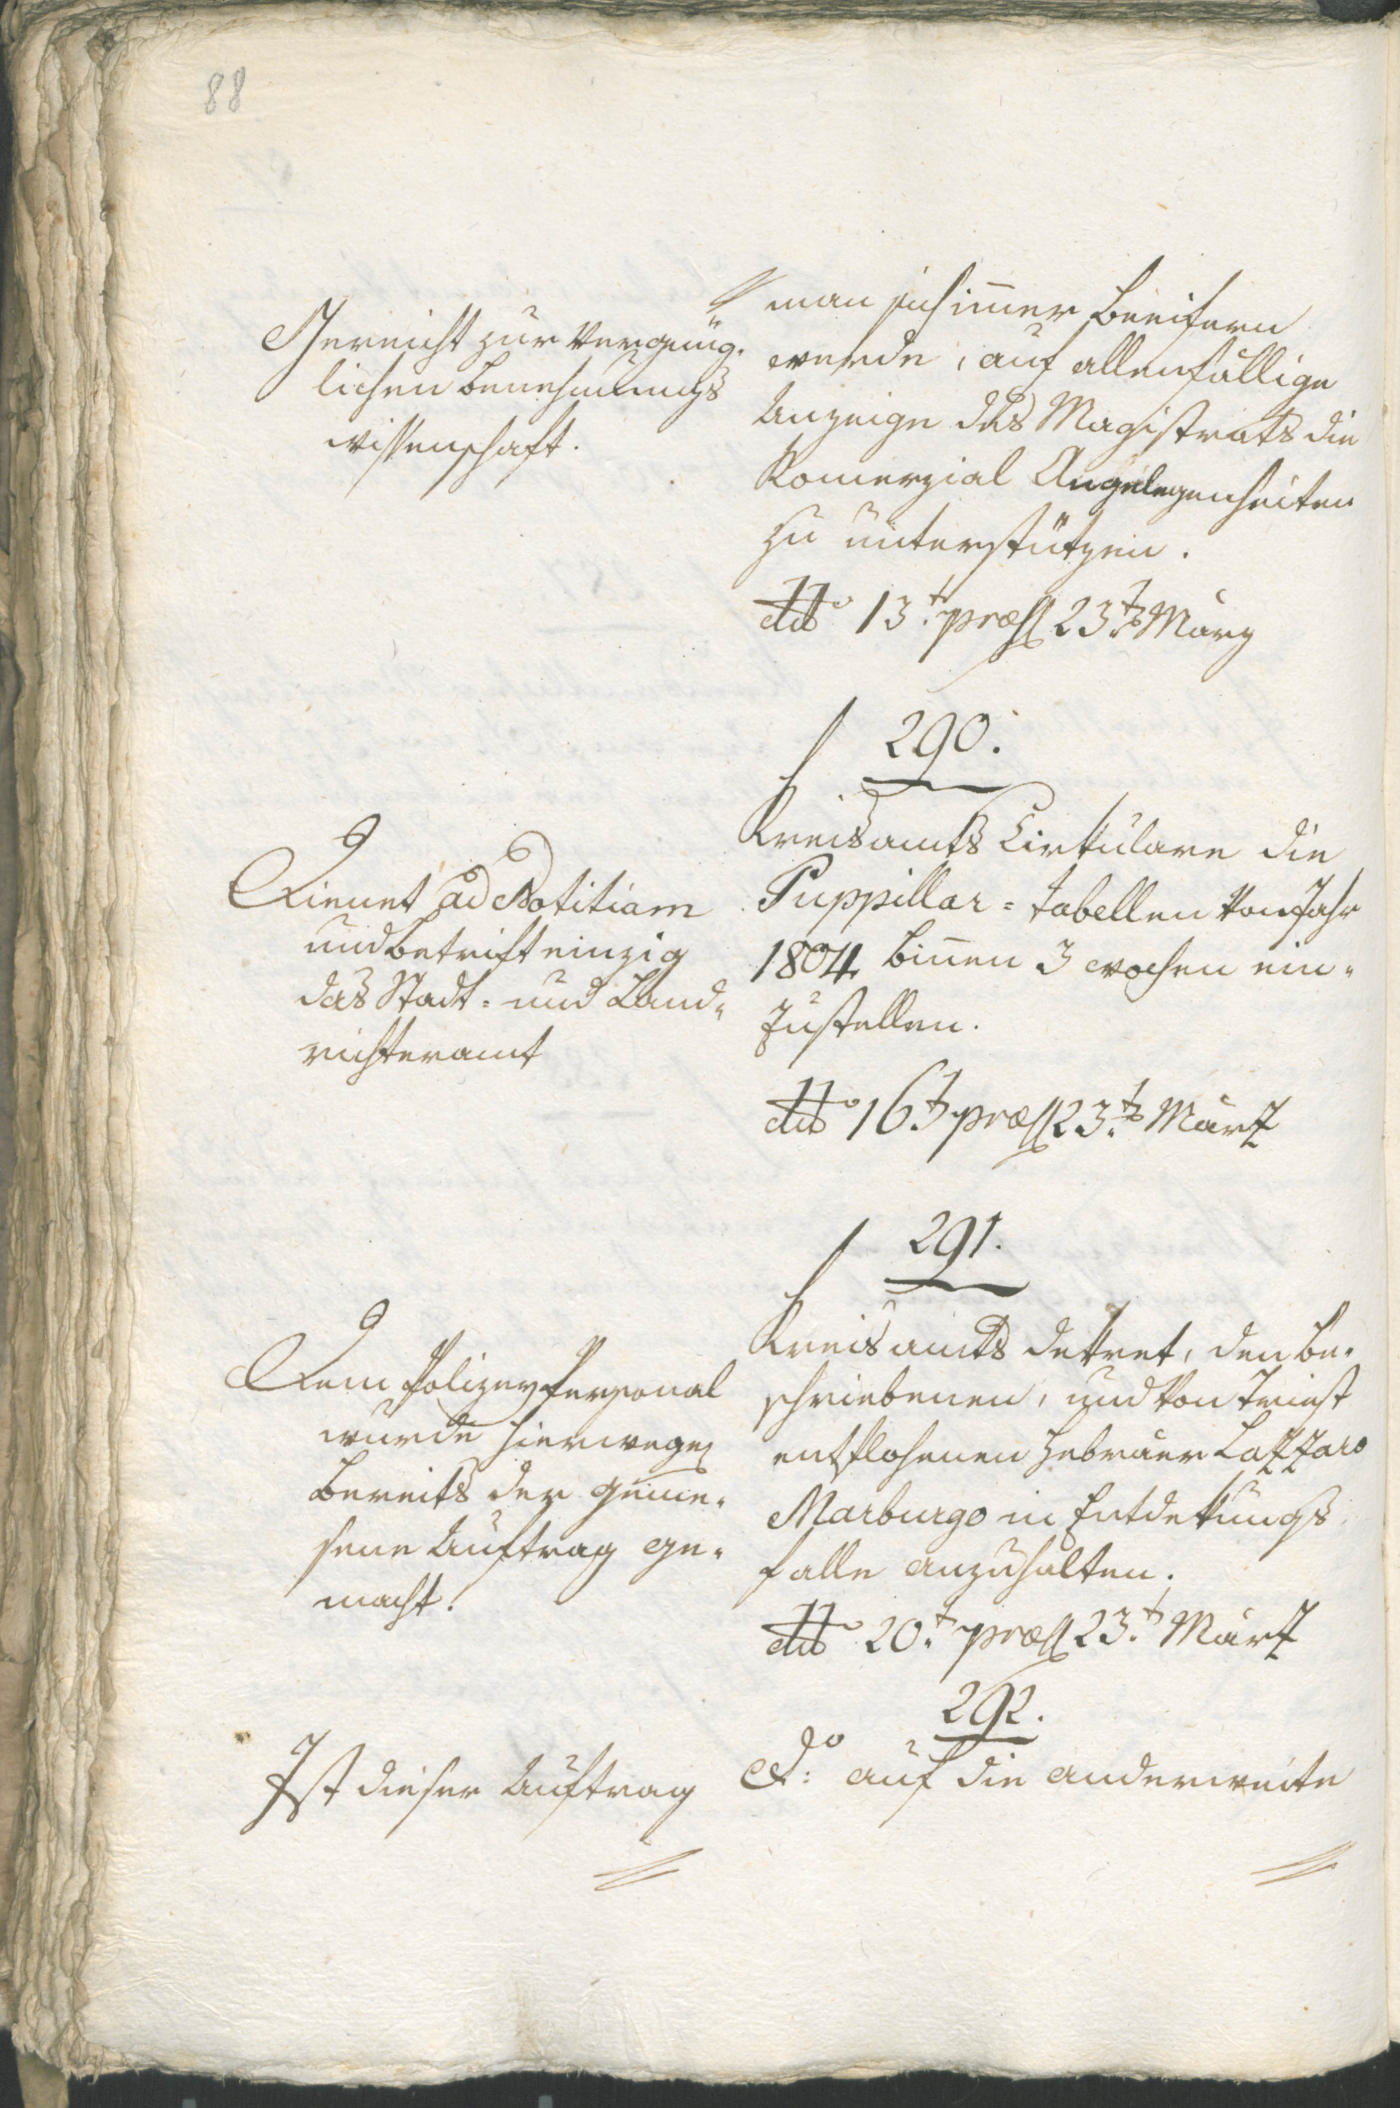 88
Gereicht zur vergnüg-
lichen benehmungs
wissenschaft.
man sich immer beeifern
werde, auf allenfällige
Anzeige des Magistrats die
Komerzial Angelegenheiten
zu unterstützen.
ddto 13t. præs 23ten März
290.
Dienet ad Notitiam
und betrift einzig
das Stadt- und Land-
richteramt
Kreisamts Cirkulare die
Puppillar-tabellen von Jahr
1804 binnen 3 wochen ein-
zustellen.
ddto 16t præs 23ten März
291.
Dem Polizey Personal
wurde hierwegen
bereits der geme-
sene Auftrag ge-
macht.
Kreisamts dekret, den be-
schriebenen, und von Triest
entflohenen Hebräer Lazzaro
Marburgo in Entdekungs
falle anzuhalten.
ddto 20t. præs 23t. März
292.
Ist dieser Auftrag
do: auf die anderweite